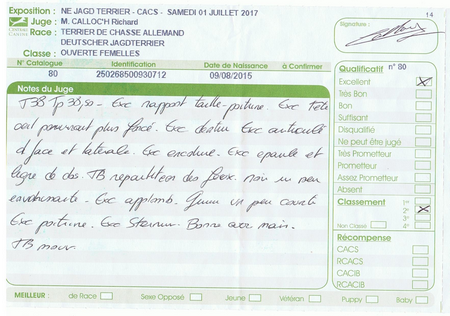 Exposition : NE JAGD TERRIER - CACS - SAMEDI 01 JUILLET 2017
14
Juge : M. CALLOC'H Richard
Signature :
Race : TERRIER DE CHASSE ALLEMAND
DEUTSCHER JAGDTERRIER
Classe : OUVERTE FEMELLES
N° Catalogue Identification Date de Naissance à Confirmer
80 250268500930712 09/08/2015
Qualificatif n° 80
Excellent
Très Bon
Bon
Suffisant
Disqualifié
Ne peut être jugé
Très Prometteur
Prometteur
Assez Prometteur
Absent
Classement
1er
2e
3e
4e
Non Classé
Récompense
CACS
RCACS
CACIB
RCACIB
Notes du Juge
TBB Tp 38,50 - Exc rapport taille-poitrine. Exc Tête
oeil pourrait plus foncé. Exc dentu Exc articulé
d face et latérale. Exc encolure. Exc epaule et
ligne de dos. TB répartition des feux. noir un peu
envahissante - Exc applomb. un peu courte
Exc poitrine. Exc Sternum. Bonne avec main.
TB mouv.
MEILLEUR : de Race Sexe Opposé Jeune Vétéran Puppy Baby